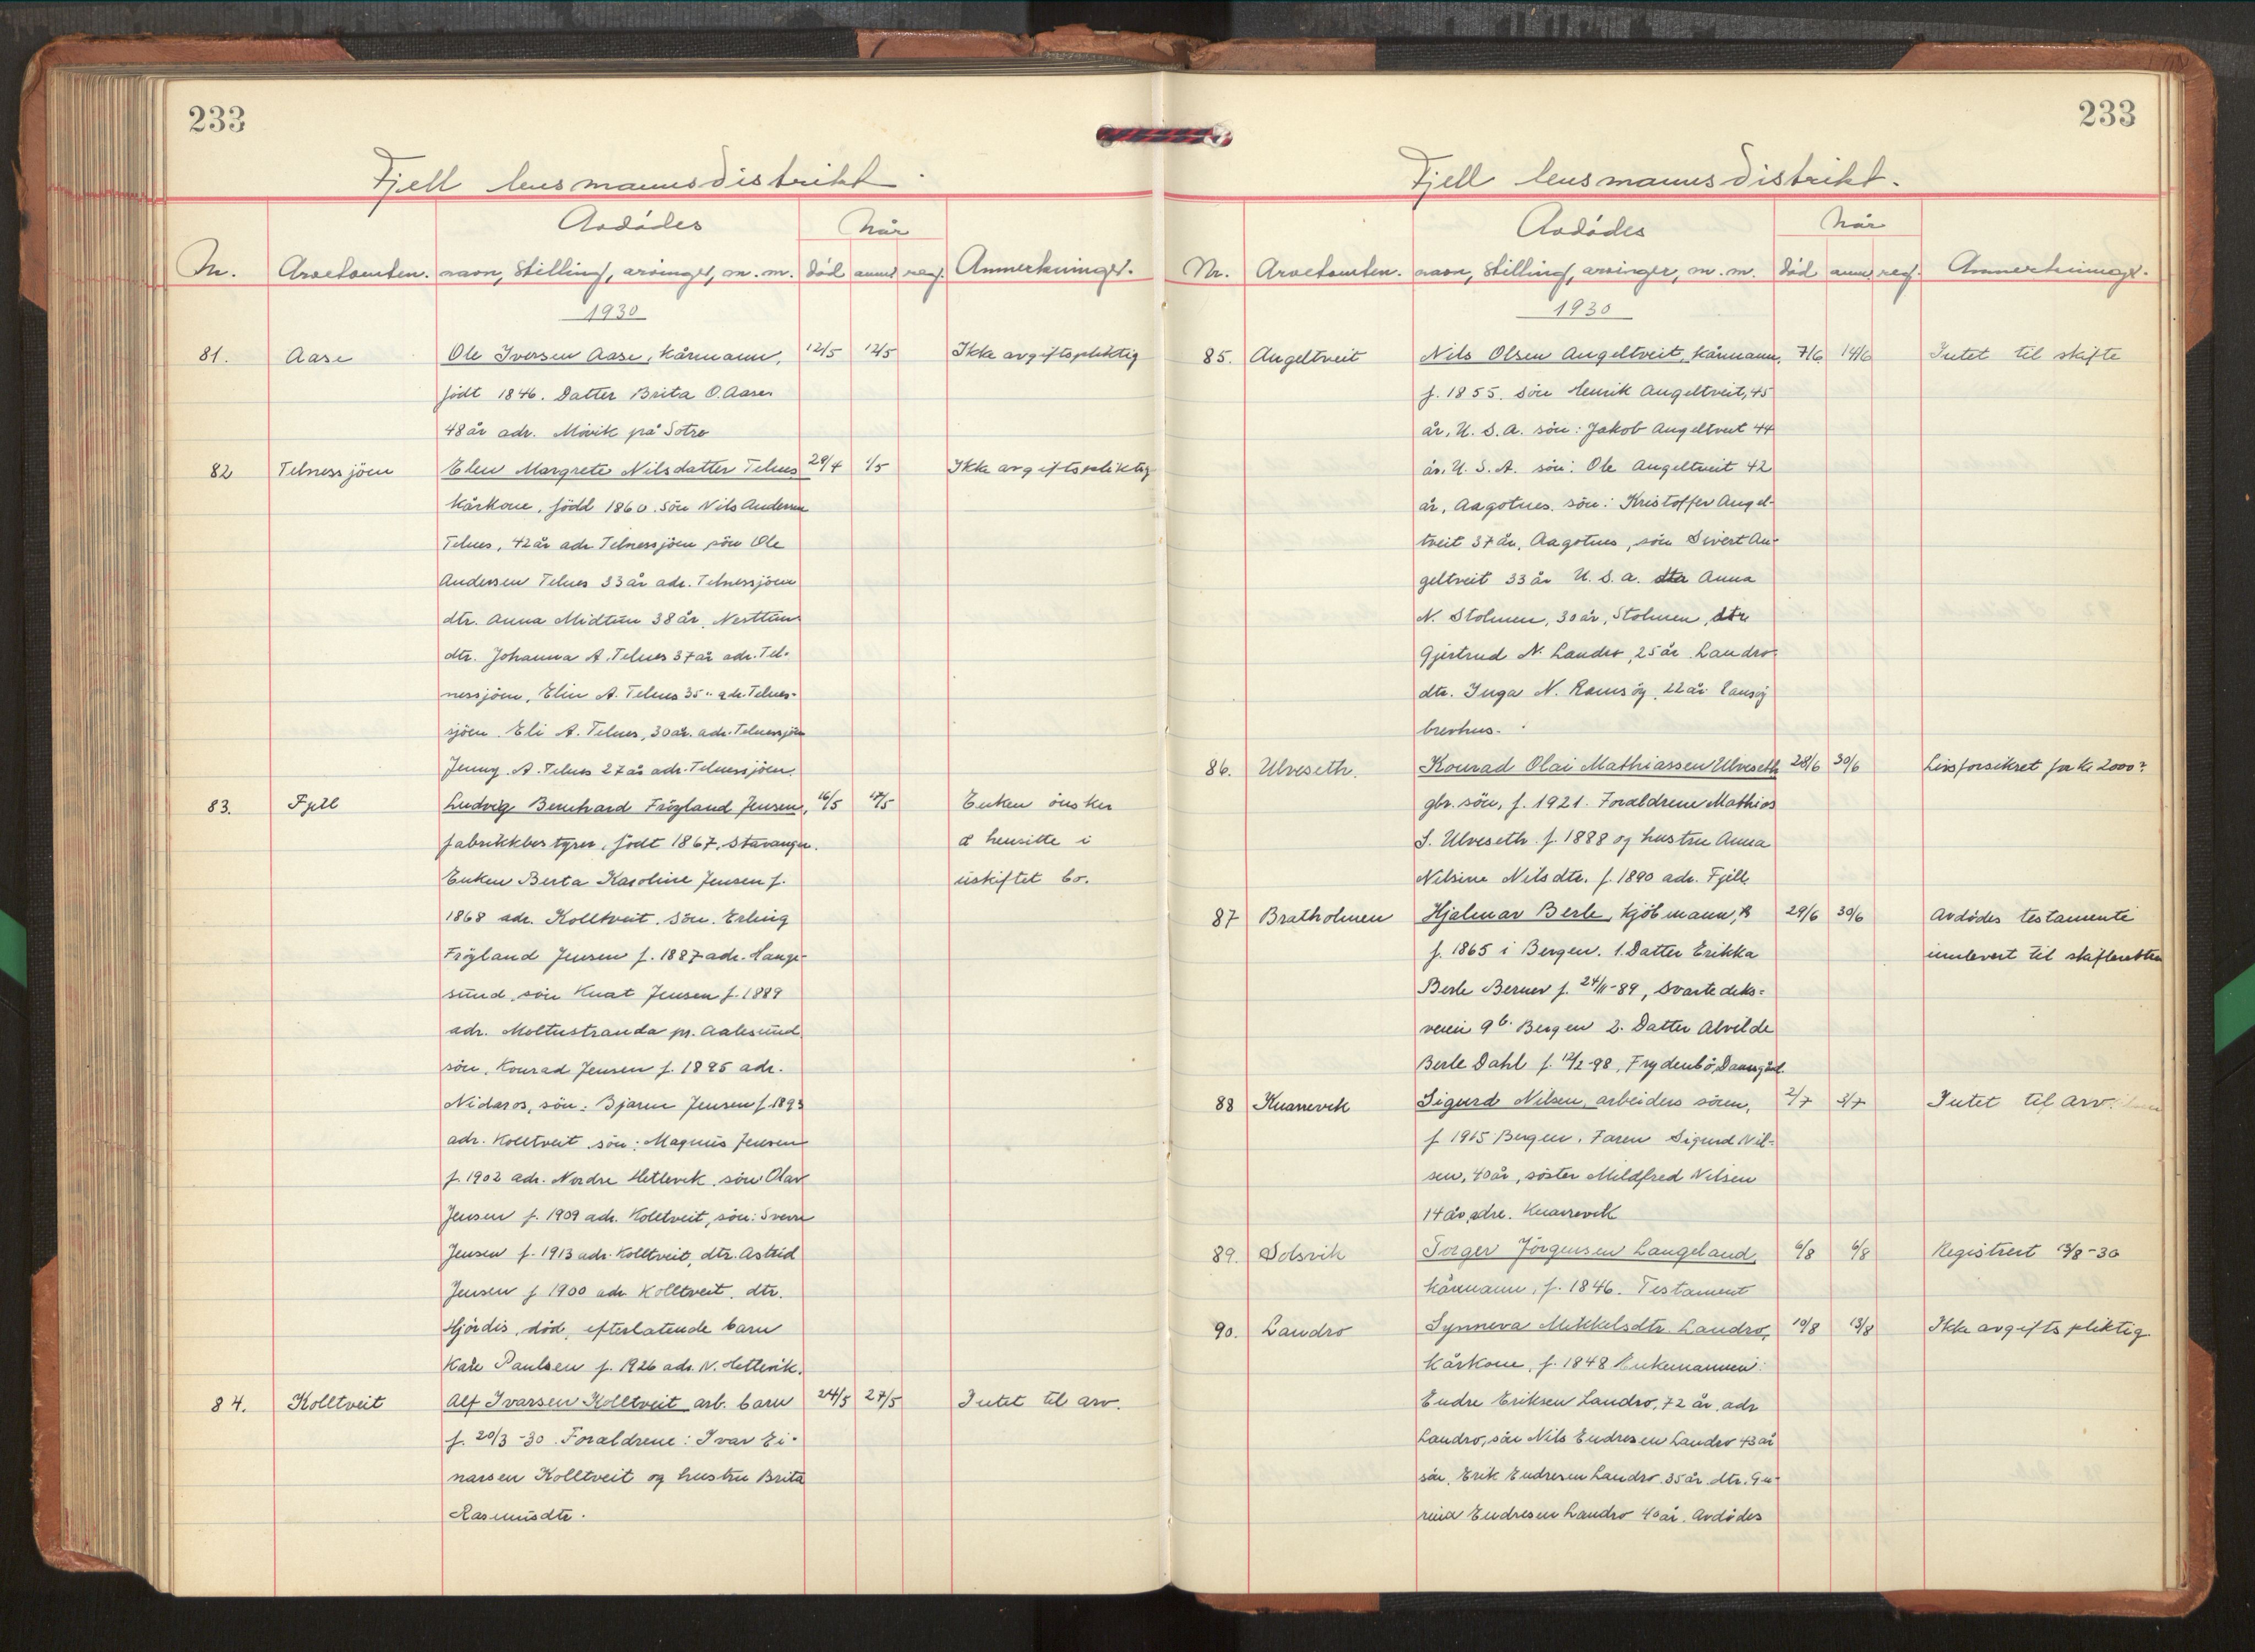 233
Fjell lensmannsdistrikt.
Avdödes
Når
Nr. Arvetomten. navn, Stilling, arvinger, m. m. död anm. reg. Anmerkninger.
1930
81. Aase Ole Iversen Aase, kårmann, 12/5 12/5 Ikke avgiftspliktig
födt 1846. Datter Brita O. Aase
48 år adr. Movik på Sotra
82 Telnessjöen Elen Margrete Nilsdatter Telnes 29/4 1/5 Ikke avgiftspliktig
kårkone, född 1860. Sön Nils Andersen
Telnes, 42 år adr. Telnessjöen sön Ole
Andersen Telnes 33 år adr. Telnessjöen
dtr. Anna Midtun 38 år, Nesttun
dtr. Johanna A. Telnes 37 år adr. Tel-
nessjöen, Elin A. Telnes 35 " adr. Telnes-
sjöen. Eli A. Telnes, 30 år. adr. Telnessjöen
Jenny A. Telnes 27 år adr. Telnessjöen.
83. Fjell Ludvig Bernhard Fröyland Jensen, 16/5 17/5 Enken önsker
fabrikkbestyrer, födt 1867, Stavanger. å hensitte i
Enken Berta Karoline Jensen f. uskiftet bo.
1868 adr. Kolltveit. Sön. Erling
Fröyland Jensen f. 1887 adr. Hauge-
sund, sön Knut Jensen f. 1889
adr. Moltustranda pr. Aalesund
sön, Konrad Jensen f. 1895 adr.
Nidaros, sön: Bjarne Jensen f. 1893
adr. Kolltveit sön: Magnus Jensen
f. 1902 adr. Nordre Hetlevik. sön: Olav
Jensen f. 1909 adr. Kolltveit, sön: Sverre
Jensen f. 1913 adr. Kolltveit, dtr. Astrid
Jensen f 1900 adr Kolltveit. dtr.
Hjördis, död, efterlatende barn
Kåre Paulsen f. 1926 adr. N. Hetlevik.
84. Kolltveit Alf Ivarsen Kolltveit arb. barn 24/5 27/5 Intet til arv.
f. 20/3 -30. Foreldrene: Ivar Ei-
narsen Kolltveit og hustru Brita
Rasmusdtr.
233
Fjell lensmannsdistrikt.
Avdödes
Når
Nr. Arvetomten. navn, Stilling, arvinger, m. m. Död anm. reg. Anmerkninger.
1930
85. Angeltveit Nils Olsen Angeltveit, kårmann, 7/6 14/6 Intet til skifte
f. 1855. Sön Henrik Angeltveit, 45
år, U. S. A. sön: Jakob Angeltveit 44
år. U. S. A. sön: Ole Angeltveit 42
år, Aagotnes. sön: Kristoffer Angel-
tveit 37 år, Aagotnes, sön Sivert An-
geltveit 33 år U. S. A. dtr Anna
N. Stolmen, 30 år, Stolmen, dtr
Gjertrud N. Landro, 25 år Landro.
dtr. Inga N. Ramsöy, 22 år
brevhus.
86. Ulveseth. Konrad Olai Mathiassen Ulveseth 28/6 30/6 Livsforsikret for kr 2000?
gbr. sön, f. 1921. Foraldrene Mathias
S. Ulveseth f. 1888 og hustru Anna
Nilsine Nilsdtr. f. 1890 adr. Fjell.
87 Bratholmen Hjalmar Berle, kjöbmann, 29/6 30/6 Avdödes testamente
f. 1865 i Bergen. 1. Datter Erikka innlevert til skifteretten
Berle Berner f. 24/11-89, Svartediks-
veien 9b. Bergen 2. Datter Alvilde
Berle Dahl f. 12/2-98, Frydenbö, Damsgård.
88 Knarrevik Sigurd Nilsen, arbeiders sönn, 2/7 3/7 Intet til arv.
f 1915 Bergen. Faren Sigurd Nil-
sen, 40 år, söster Mildfred Nilsen
14 år, adre. Knarrevik
89. Solsvik Torger Jörgensen Langeland, 6/8 6/8 Registrert 13/8-30
kårmann, f. 1846. Testament
90. Landro Synneva Mikkelsdtr. Landro, 10/8 13/8 Ikke avgiftspliktig.
kårkone, f. 1848 Enkemannen:
Endre Eriksen Landro, 72 år, adr
Landro, sön Nils Endresen Landro 43 år
sön, Erik Endresen Landro 35 år. dtr. Gu-
rina Endresen Landro 40 år. Avdödes